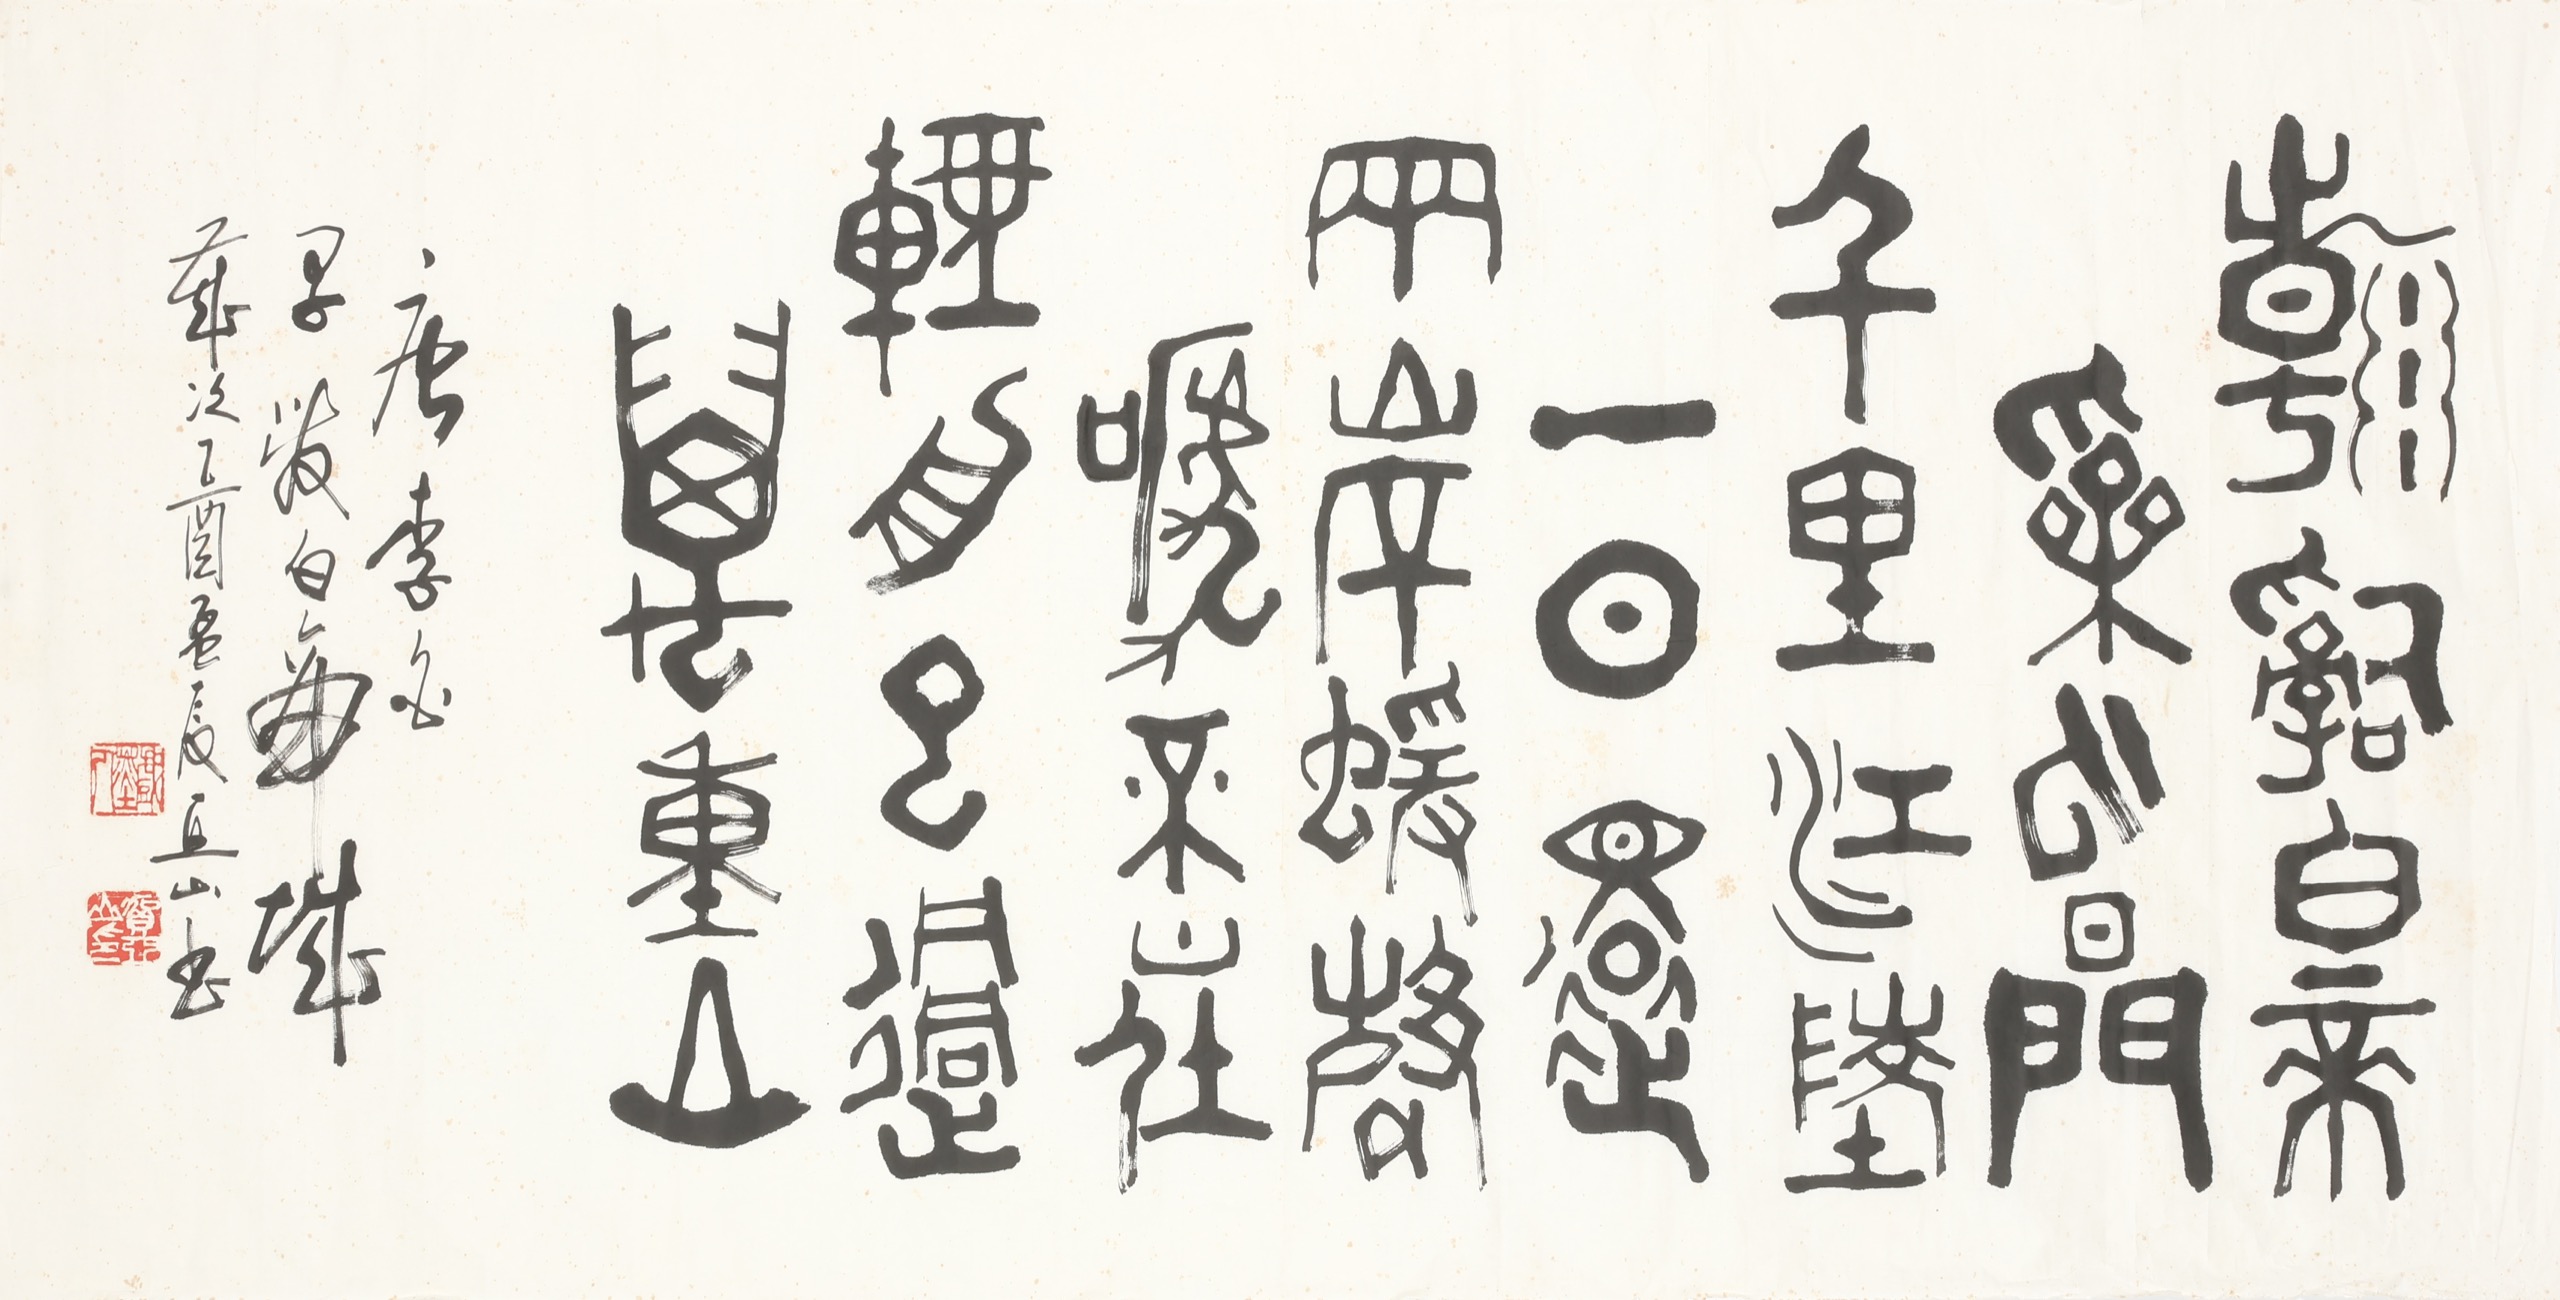 朝辭白帝
采雲間
千里江陵
一日還
兩岸蝯聲
嗁不住
輕舟已過
萬重山
唐李白
早發白帝城
歲次乙酉孟夏丘山書